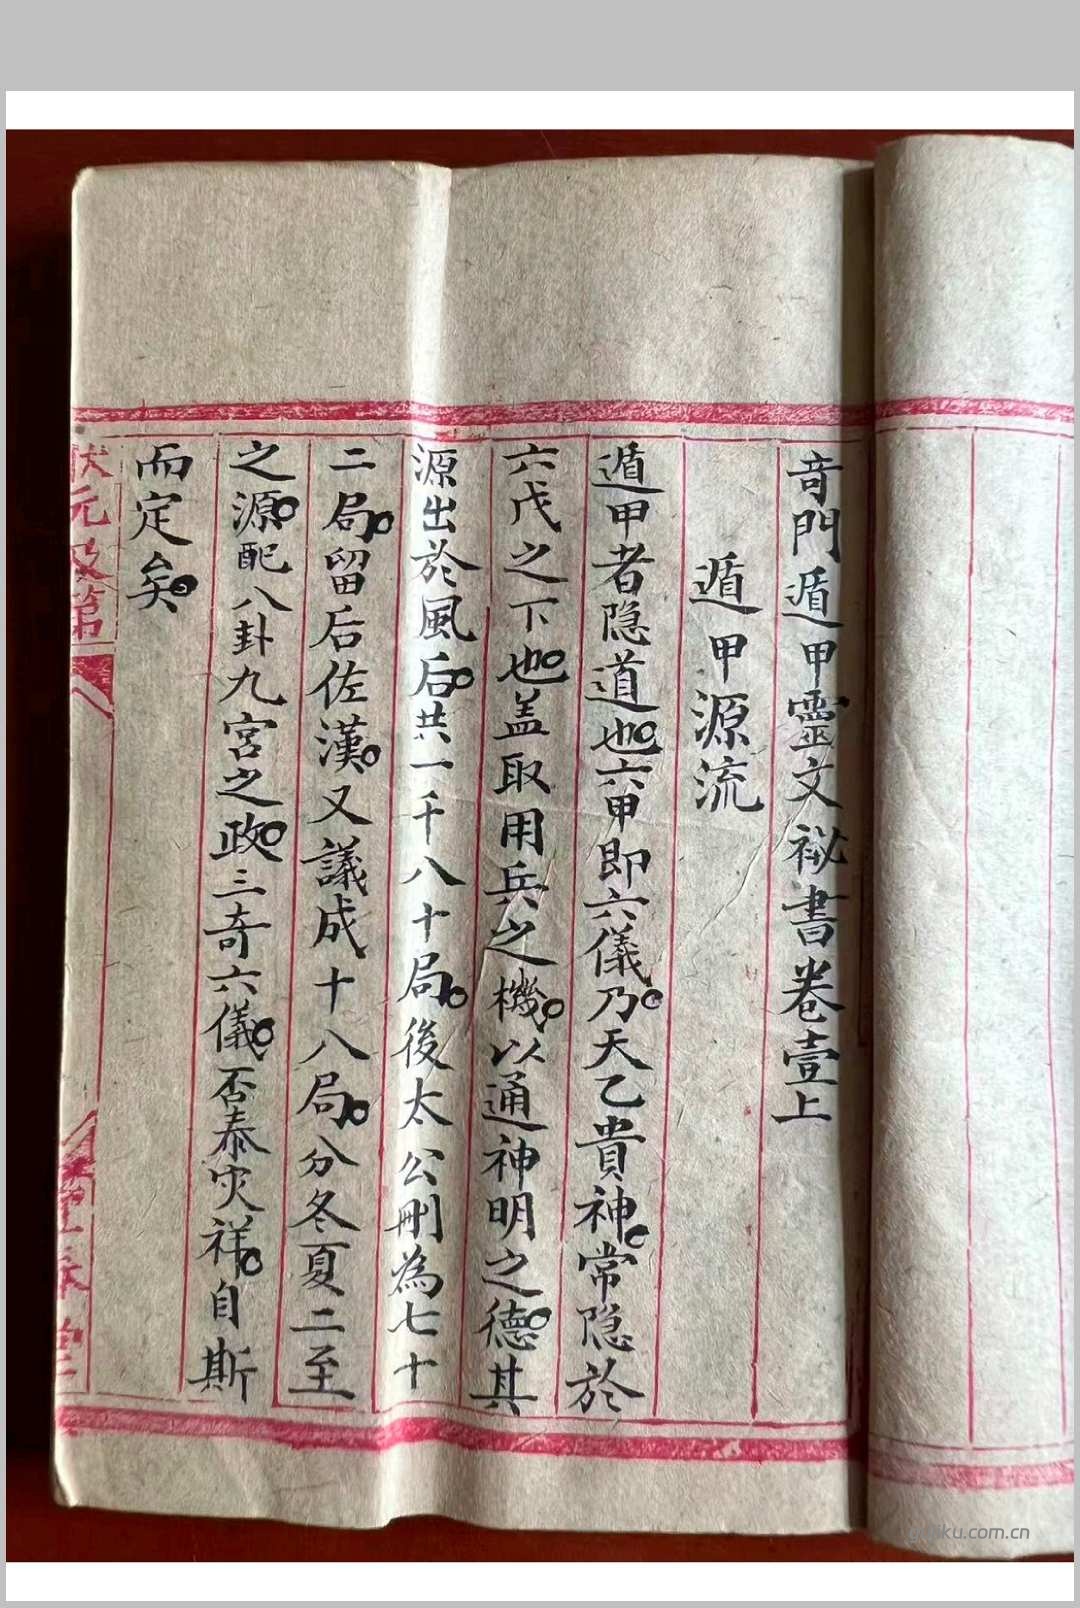 奇門遁甲靈文祕書卷壹上
遁甲源流
遁甲者隐道也六甲即六儀乃天乙貴神常隐於
六戊之下也盖取用兵之機以通神明之德其
源出於風后共一千八十局後太公刪為七十
二局留后佐漢又議成十八局分冬夏二至
之源配八卦九宮之政三奇六儀否泰灾祥自斯
而定矣
状元及第
ku.com.cn